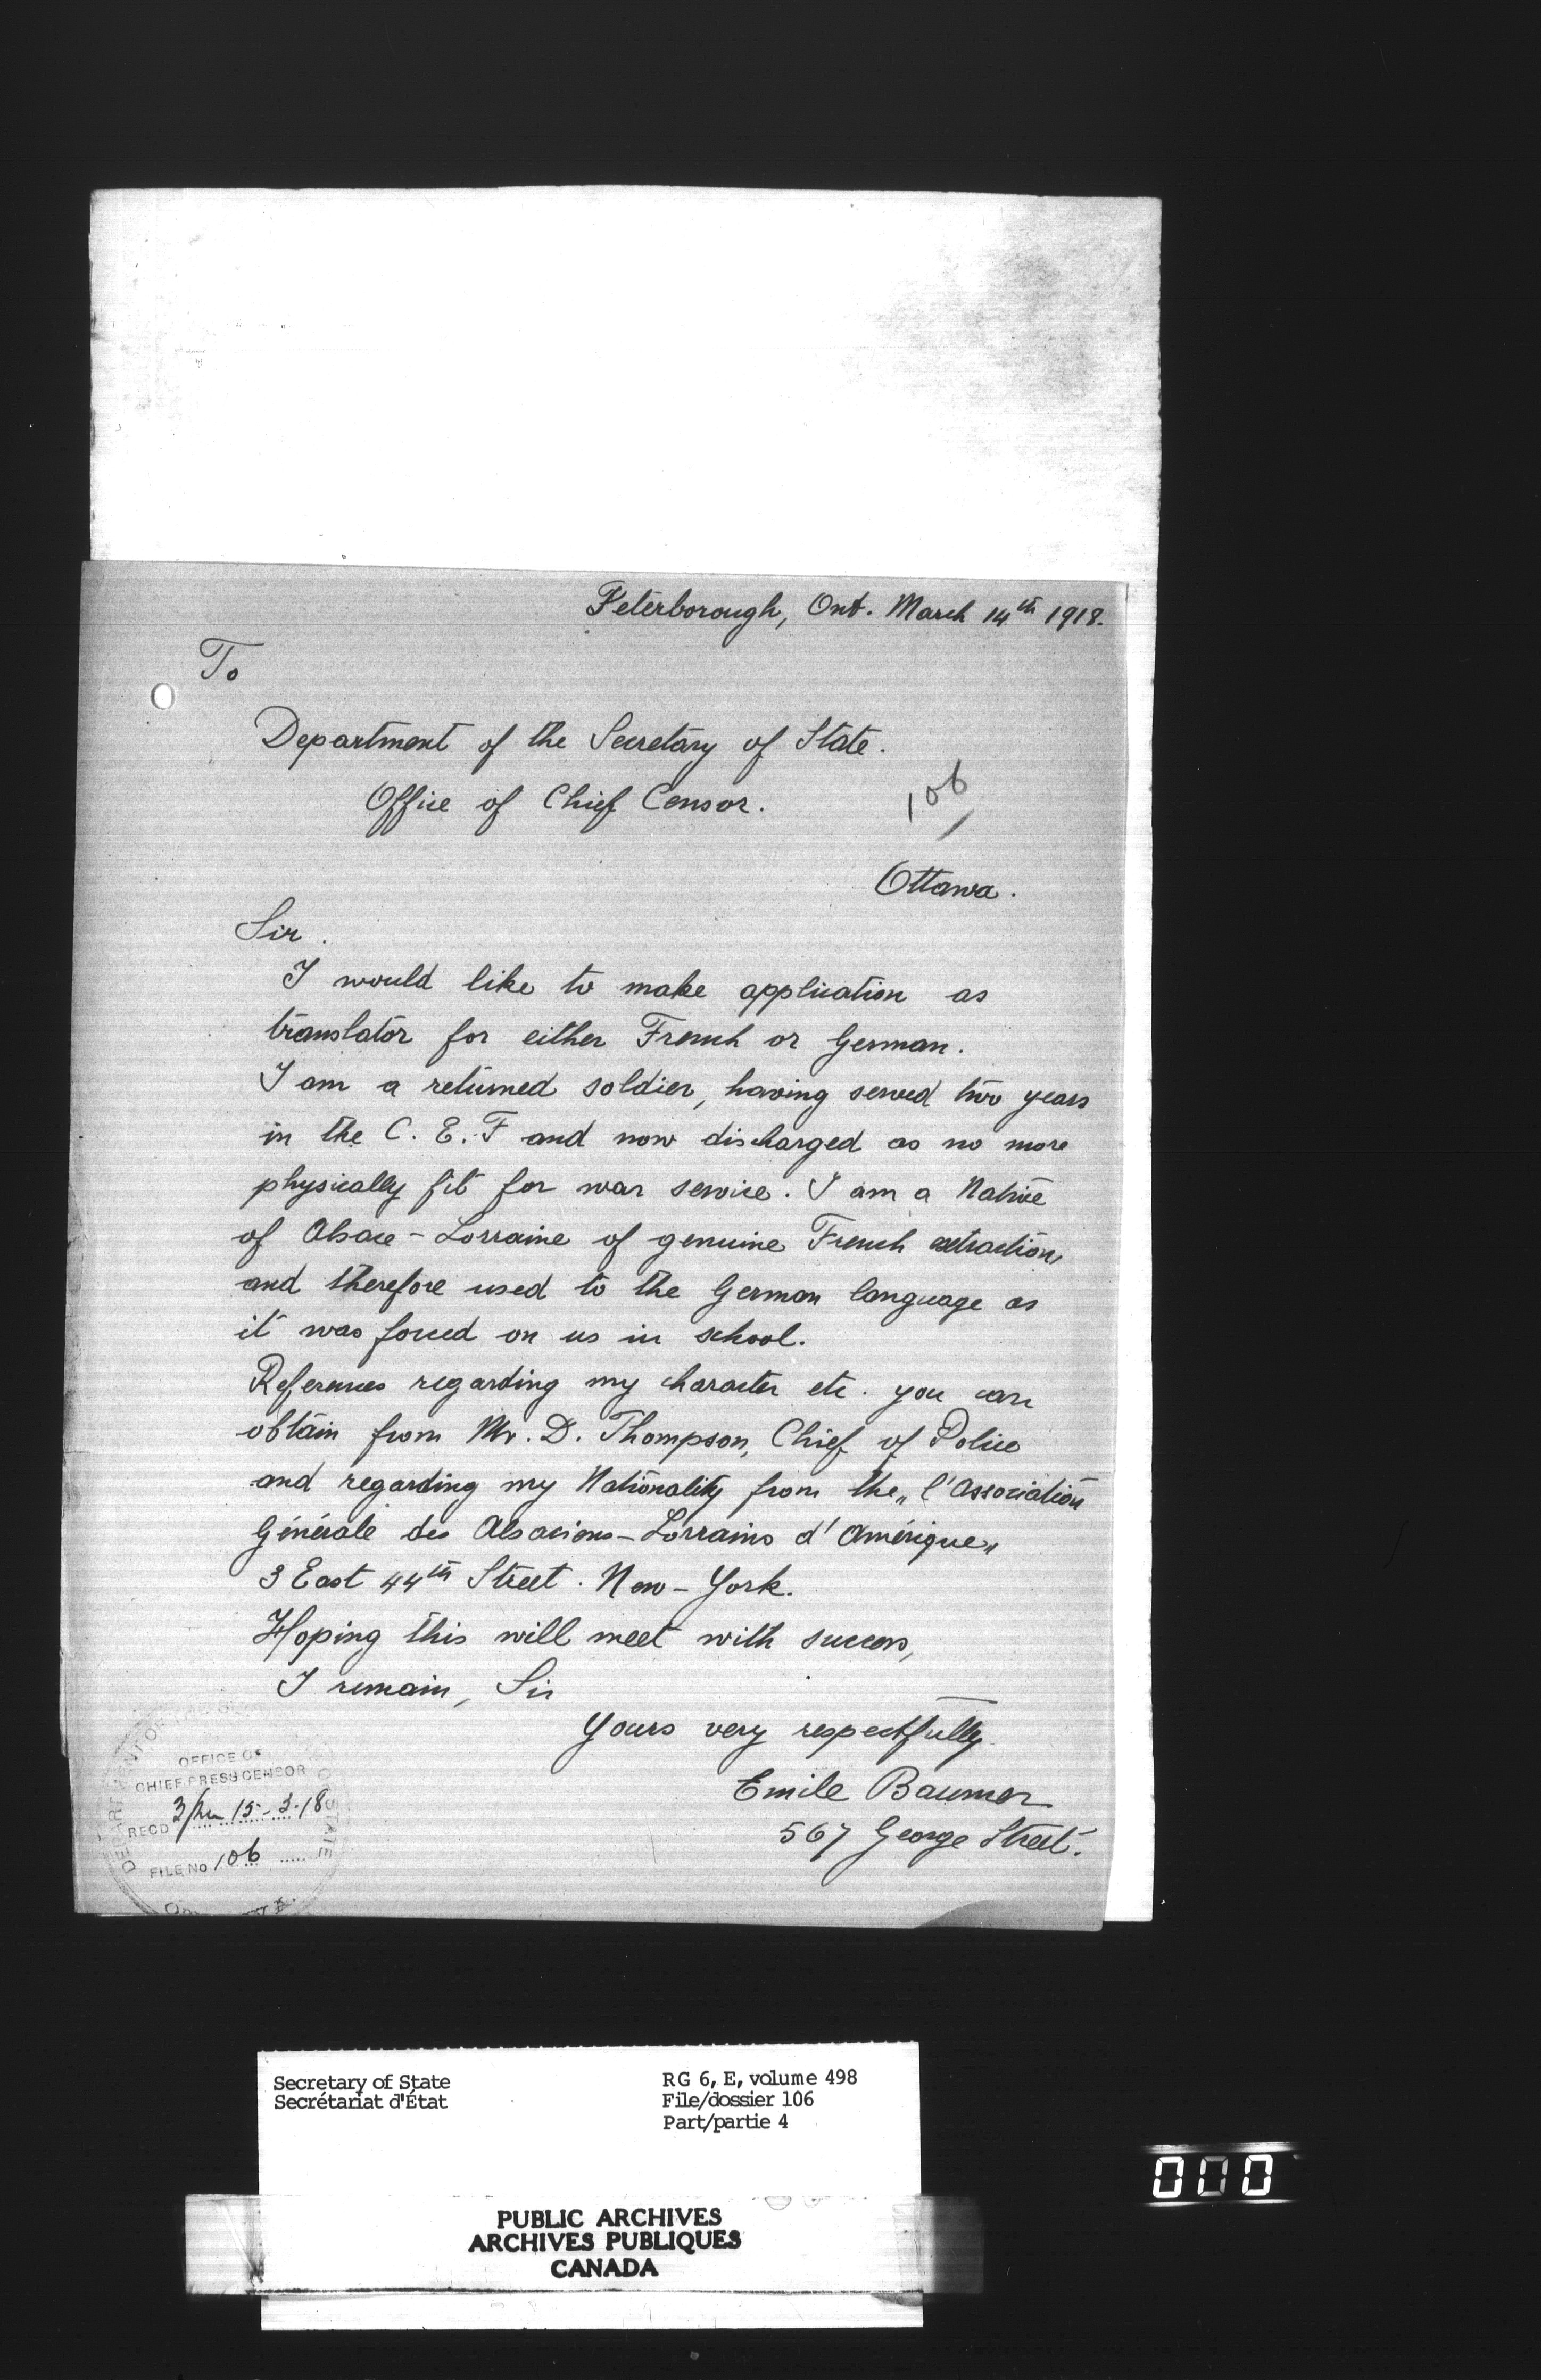 Peterborough, Ont. March 14th 1918.
To
Department of the Secretary of State.
Office of Chief Censor.
106
Ottawa.
Sir.
I would like to make application as
translator for either French or German.
I am a returned soldier, having served two years
in the C. E. F and now discharged as no more
physically fit for war service. I am a Native
of Alsace-Lorraine of genuine French extraction,
and therefore used to the German language as
it was forced on us in school.
References regarding my character etc. you can
obtain from Mr. D. Thompson, Chief of Police
and regarding my Nationality from the „l'Association
Générale des Alsaciens-Lorrains d'Amérique„
3 East 44th Street. New-York.
Hoping this will meet with success,
I remain, Sir
Yours very respectfully.
Emile Baumer
567 George Street.
DEPARTMENT OF THE STATE
OFFICE OF
CHIEF PRESS CENSOR
RECD 15-3-18
FILE No 106
Secretary of State
Secrétariat d'État
RG 6, E, volume 498
File/dossier 106
Part/partie 4
000
PUBLIC ARCHIVES
ARCHIVES PUBLIQUES
CANADA